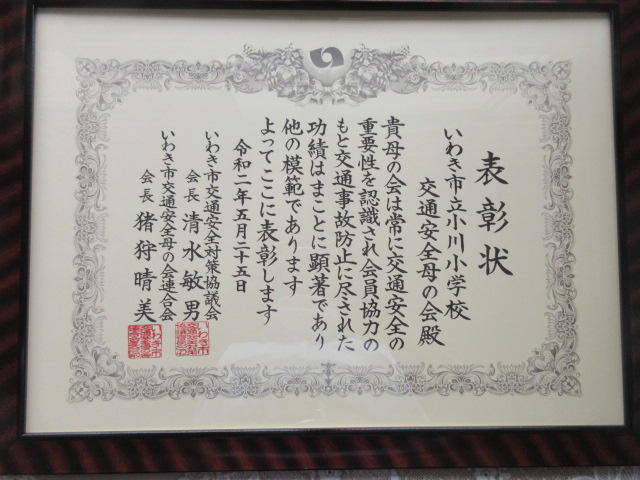 表彰状
いわき市立小川小学校
交通安全母の会殿
貴母の会は常に交通安全の
重要性を認識され会員協力の
もと交通事故防止に尽された
功績はまことに顕著であり
他の模範であります
よってここに表彰します
令和二年五月二十五日
いわき市交通安全対策協議会
会長 清水敏男
いわき市交通安全母の会連合会
会長 猪狩晴美